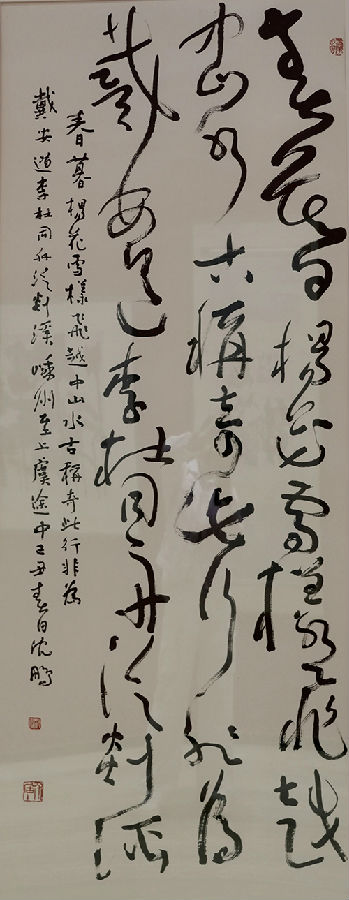 春暮楊花雪樣飛越
中山水古稱奇此行非為
戴安道李杜同舟從剡溪
春暮楊花雪樣飛越中山水古稱奇此行非為
戴安道李杜同舟從剡溪 嵊州至上虞途中己丑春日沈鵬